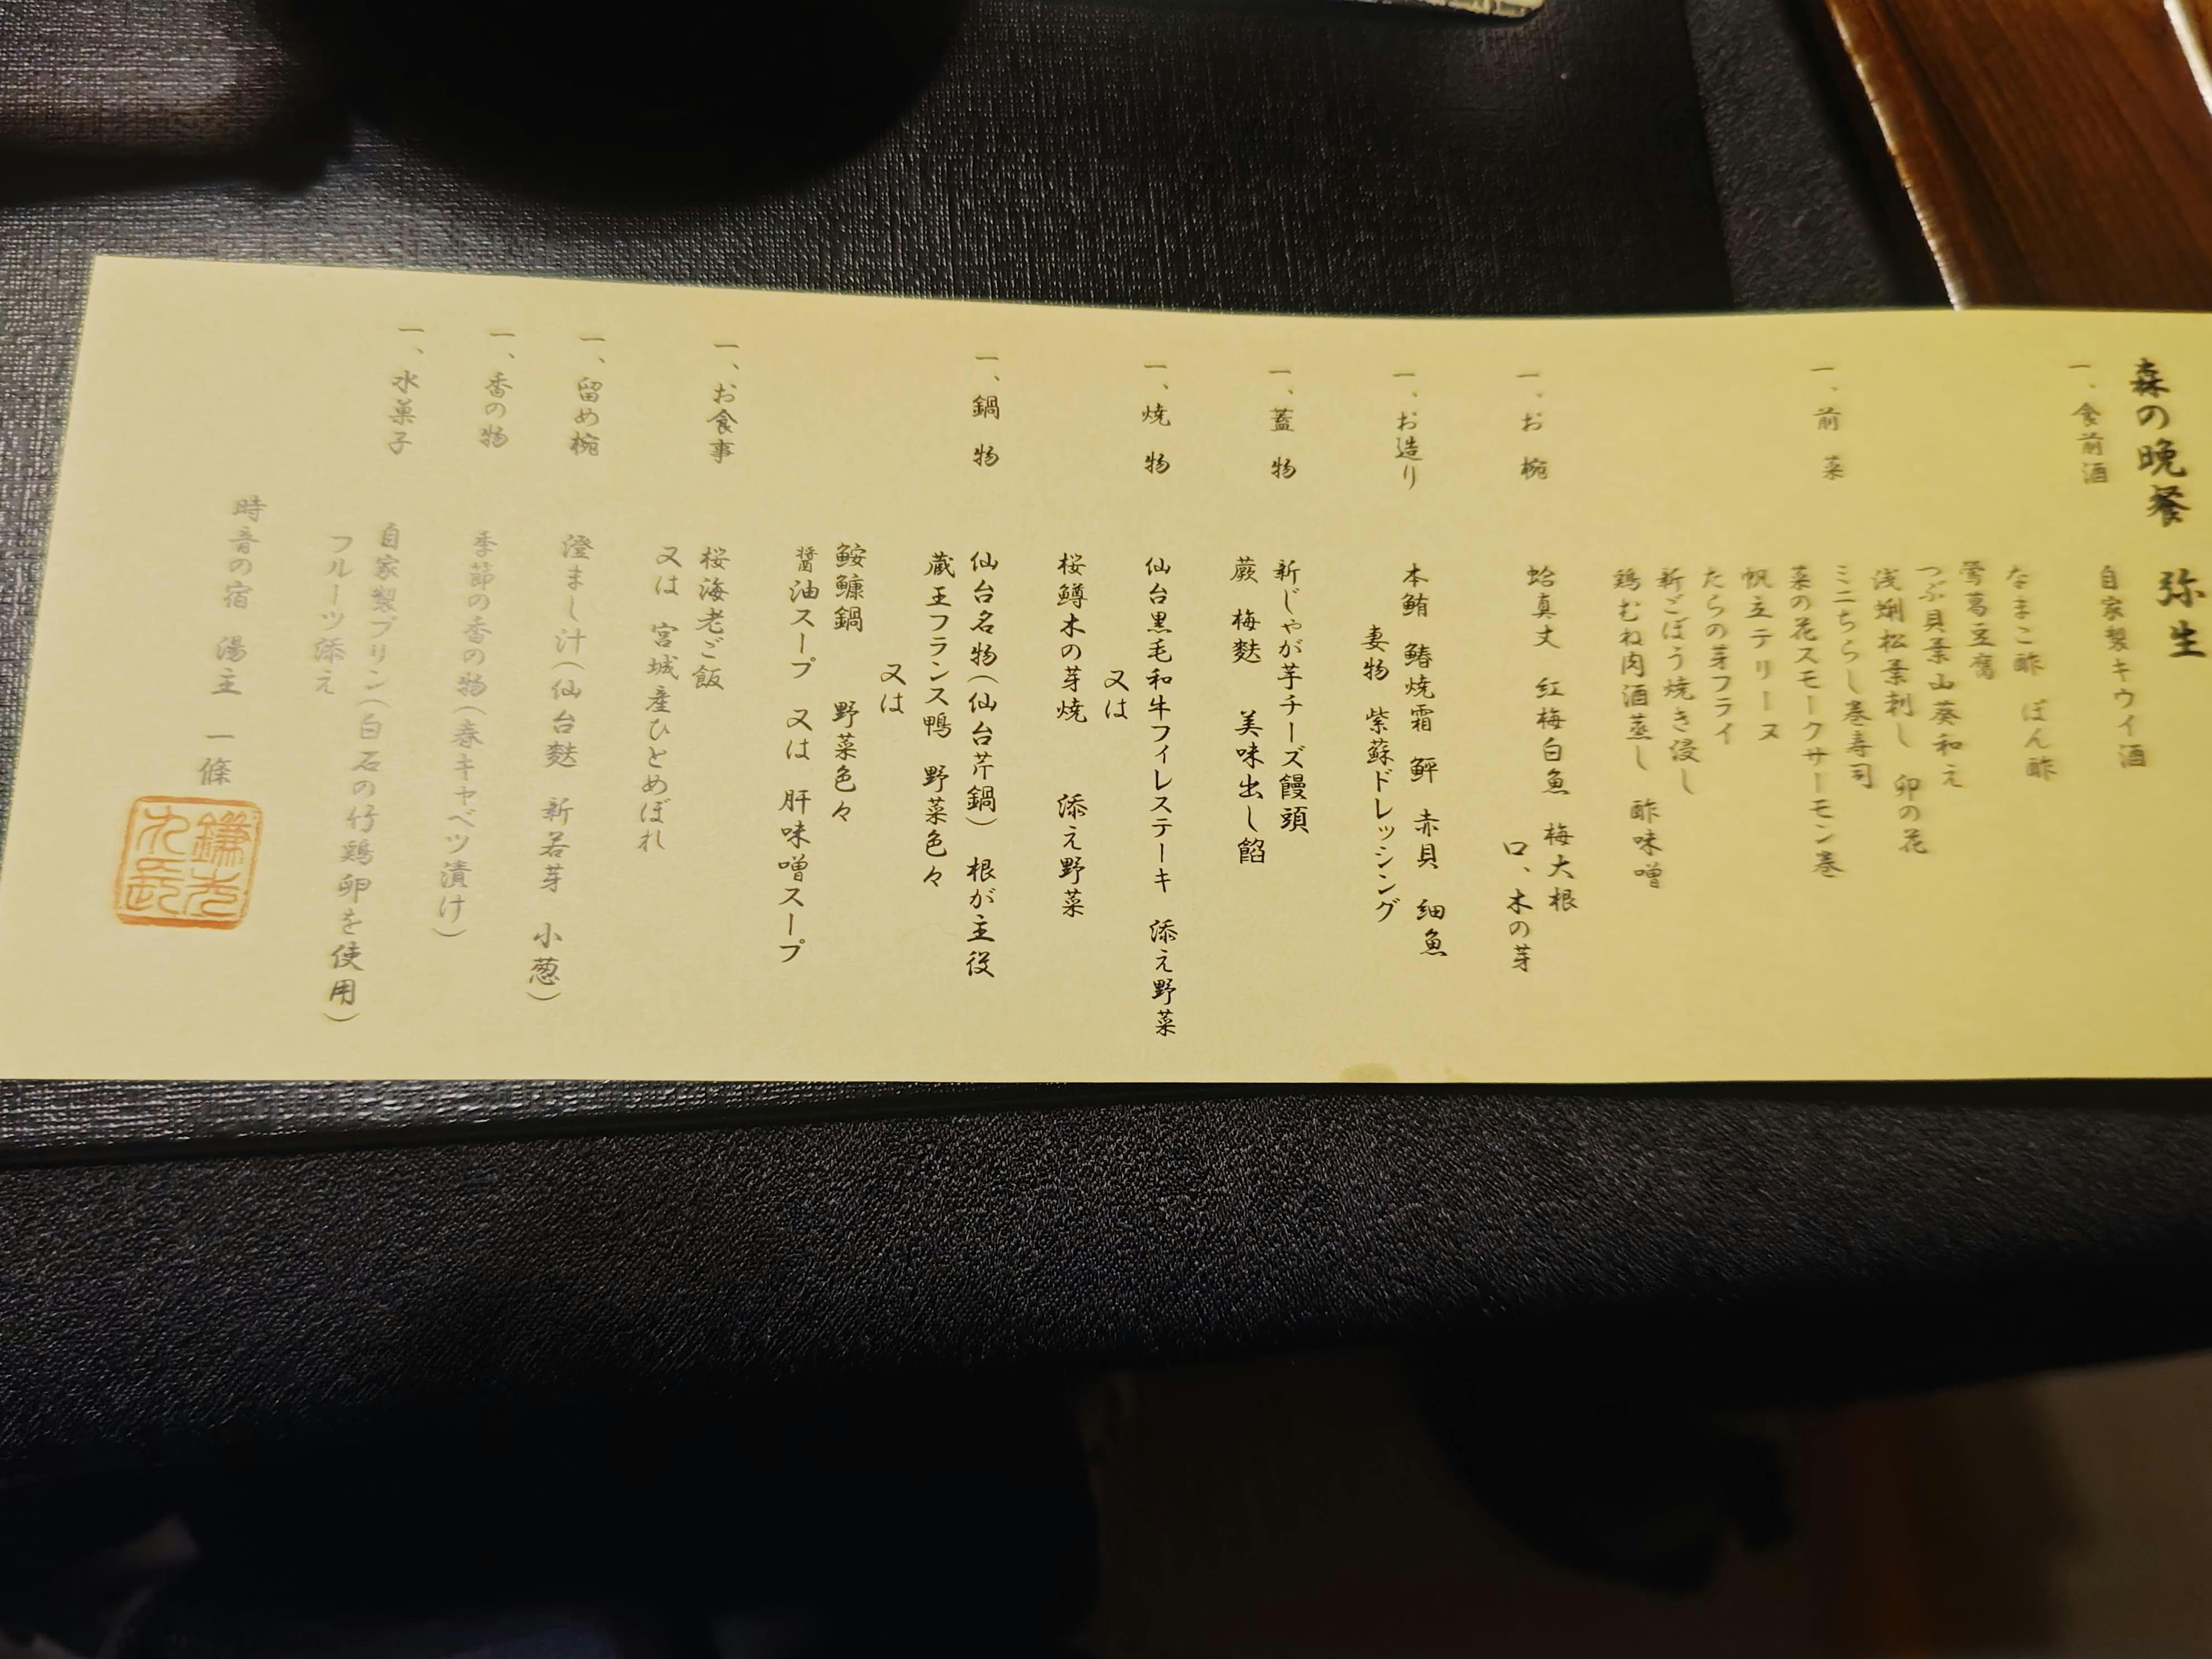 森の晩餐　弥生
一、食前酒　自家製キウイ酒
一、前菜　なまこ酢　ぽん酢
鶯葛豆腐
つぶ貝葉山葵和え
浅蜊松葉刺し　卯の花
ミニちらし巻寿司
菜の花スモークサーモン巻
帆立テリーヌ
たらの芽フライ
新ごぼう焼き浸し
鶏むね肉酒蒸し　酢味噌
一、お椀　蛤真丈　紅梅白魚　梅大根
口、木の芽
一、お造り　本鮪　鰆焼霜　鮃　赤貝　細魚
妻物　紫蘇ドレッシング
一、蓋物　新じゃが芋チーズ饅頭
蕨　梅麩　美味出し餡
一、焼物　仙台黒毛和牛フィレステーキ　添え野菜
又は
桜鱒木の芽焼　添え野菜
一、鍋物　仙台名物（仙台芹鍋）根が主役
蔵王フランス鴨　野菜色々
又は
鮟鱇鍋　野菜色々
醤油スープ　又は　肝味噌スープ
一、お食事　桜海老ご飯
又は　宮城産ひとめぼれ
一、留め椀　澄まし汁（仙台麩　新若芽　小葱）
一、香の物　季節の香の物（春キャベツ漬け）
一、水菓子　自家製プリン（白石の竹鶏卵を使用）
フルーツ添え
時音の宿　湯主　一條